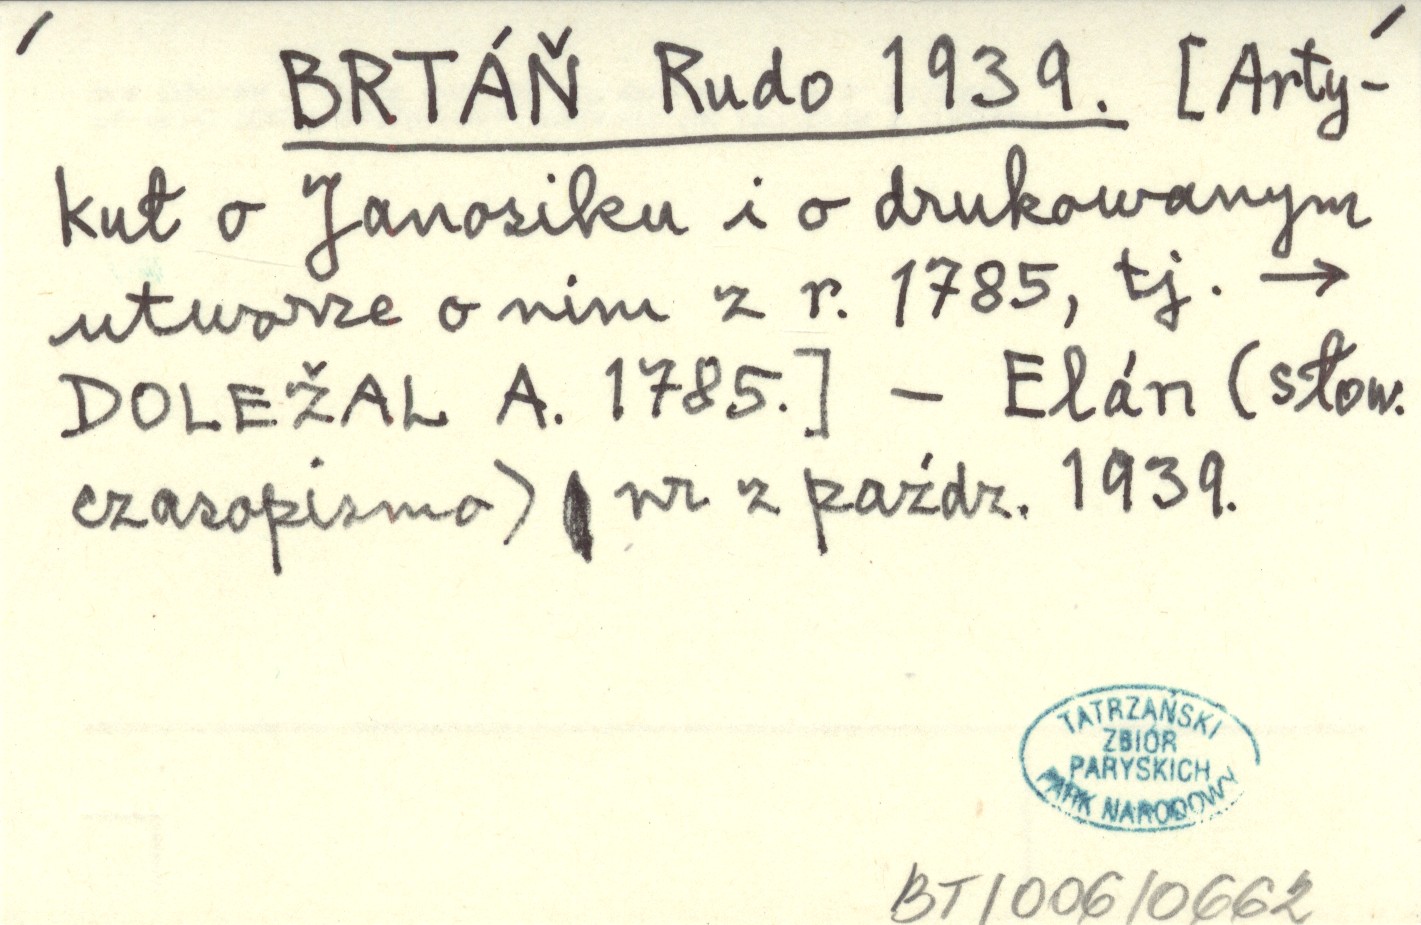 BRTÁŇ Rudo 1939. [Arty-
kuł o Janosiku i o drukowanym
utworze o nim z r. 1785, tj. →
DOLEŽAL A. 1785.] – Elán (słow.
czasopismo) nr z paźdz. 1939.
TATRZAŃSKI
ZBIÓR
PARYSKICH
PARK NARODOWY
BT/006/0662